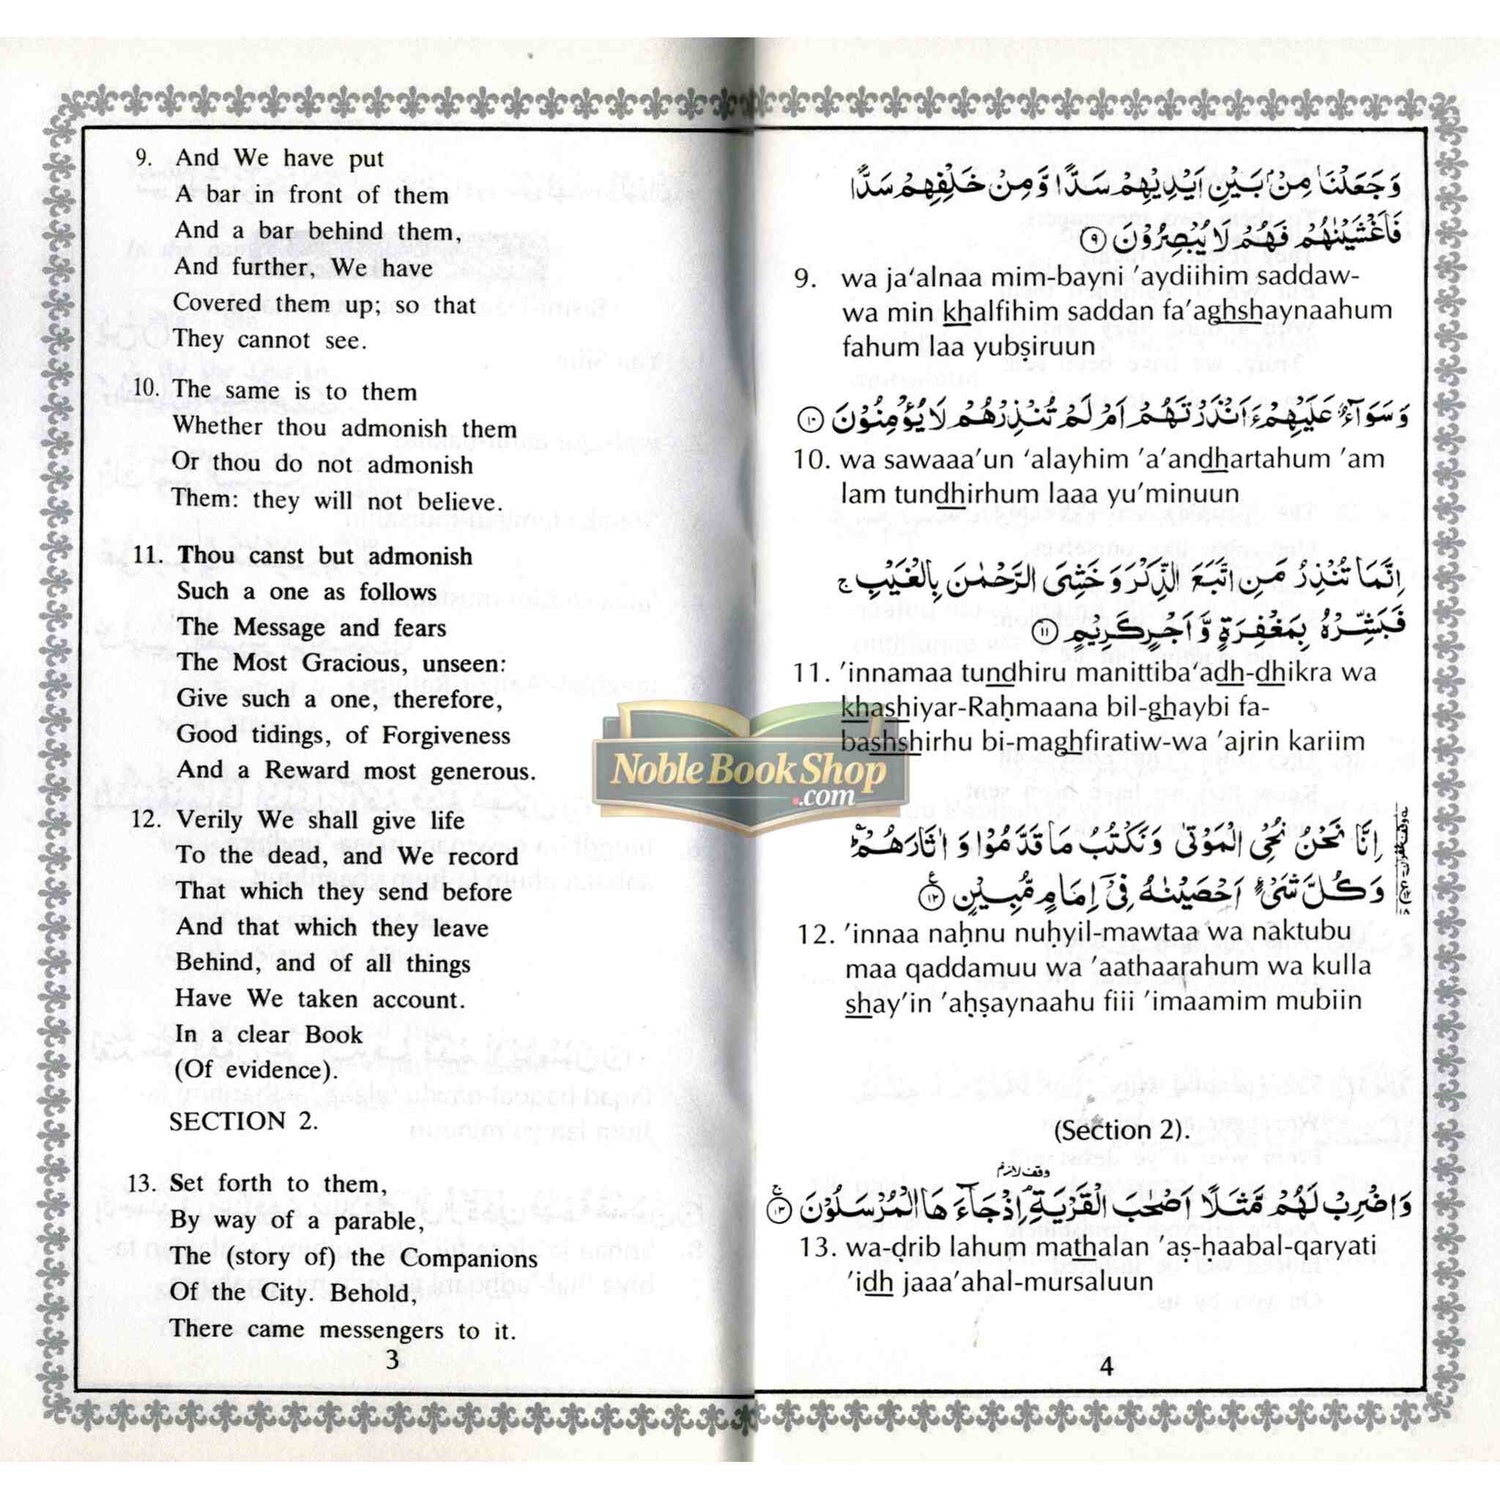 9. And We have put
A bar in front of them
And a bar behind them,
And further, We have
Covered them up; so that
They cannot see.
10. The same is to them
Whether thou admonish them
Or thou do not admonish
Them: they will not believe.
11. Thou canst but admonish
Such a one as follows
The Message and fears
The Most Gracious, unseen:
Give such a one, therefore,
Good tidings, of Forgiveness
And a Reward most generous.
12. Verily We shall give life
To the dead, and We record
That which they send before
And that which they leave
Behind, and of all things
Have We taken account.
In a clear Book
(Of evidence).
SECTION 2.
13. Set forth to them,
By way of a parable,
The (story of) the Companions
Of the City. Behold,
There came messengers to it.
3
وَجَعَلْنَا مِنْۢ بَيْنِ اَيْدِيْهِمْ سَدًّا وَّمِنْ خَلْفِهِمْ سَدًّا
فَاَغْشَيْنٰهُمْ فَهُمْ لَا يُبْصِرُوْنَ ۹
9. wa ja‘alnaa mim-bayni ’aydiihim saddaw-
wa min khalfihim saddan fa’aghshaynaahum
fahum laa yubṣiruun
وَسَوَآءٌ عَلَيْهِمْ ءَاَنْذَرْتَهُمْ اَمْ لَمْ تُنْذِرْهُمْ لَا يُؤْمِنُوْنَ ۱۰
10. wa sawaaa’un ‘alayhim ’a’andhartahum ’am
lam tundhirhum laaa yu’minuun
اِنَّمَا تُنْذِرُ مَنِ اتَّبَعَ الذِّكْرَ وَخَشِيَ الرَّحْمٰنَ بِالْغَيْبِ ج
فَبَشِّرْهُ بِمَغْفِرَةٍ وَّاَجْرٍ كَرِيْمٍ ۱۱
11. ’innamaa tundhiru manittiba‘adh-dhikra wa
khashiyar-Raḥmaana bil-ghaybi fa-
bashshirhu bi-maghfiratiw-wa ’ajrin kariim
NobleBookShop
.com
اِنَّا نَحْنُ نُحْيِ الْمَوْتٰى وَنَكْتُبُ مَا قَدَّمُوْا وَاٰثَارَهُمْ
وَكُلَّ شَيْءٍ اَحْصَيْنٰهُ فِيْٓ اِمَامٍ مُّبِيْنٍ ۱۲
12. ’innaa naḥnu nuḥyil-mawtaa wa naktubu
maa qaddamuu wa ’aathaarahum wa kulla
shay’in ’aḥṣaynaahu fiii ’imaamim mubiin
(Section 2).
وقف لازم
وَاضْرِبْ لَهُمْ مَّثَلًا اَصْحٰبَ الْقَرْيَةِ اِذْ جَآءَهَا الْمُرْسَلُوْنَ ۱۳
13. wa-ḍrib lahum mathalan ’aṣ-ḥaabal-qaryati
’idh jaaa’ahal-mursaluun
4